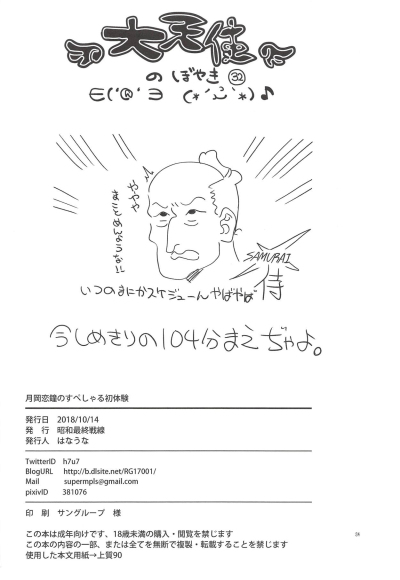 大天使
のぼやき㉜
∈(´®`∋ (*´ω`*)♪
まことめんような!!
SAMURAI
侍
いつのまにかスケジューんやばやば
今しめきりの104分まえぢゃよ。
月岡恋鐘のすぺしゃる初体験
発行日 2018/10/14
発 行 昭和最終戦線
発行人 はなうな
TwitterID h7u7
BlogURL http://b.dlsite.net/RG17001/
Mail supermpls@gmail.com
pixivID 381076
印 刷 サングループ 様
この本は成年向けです、18歳未満の購入・閲覧を禁じます
この本の内容の一部、または全てを無断で複製・転載することを禁じます
使用した本文用紙→上質90